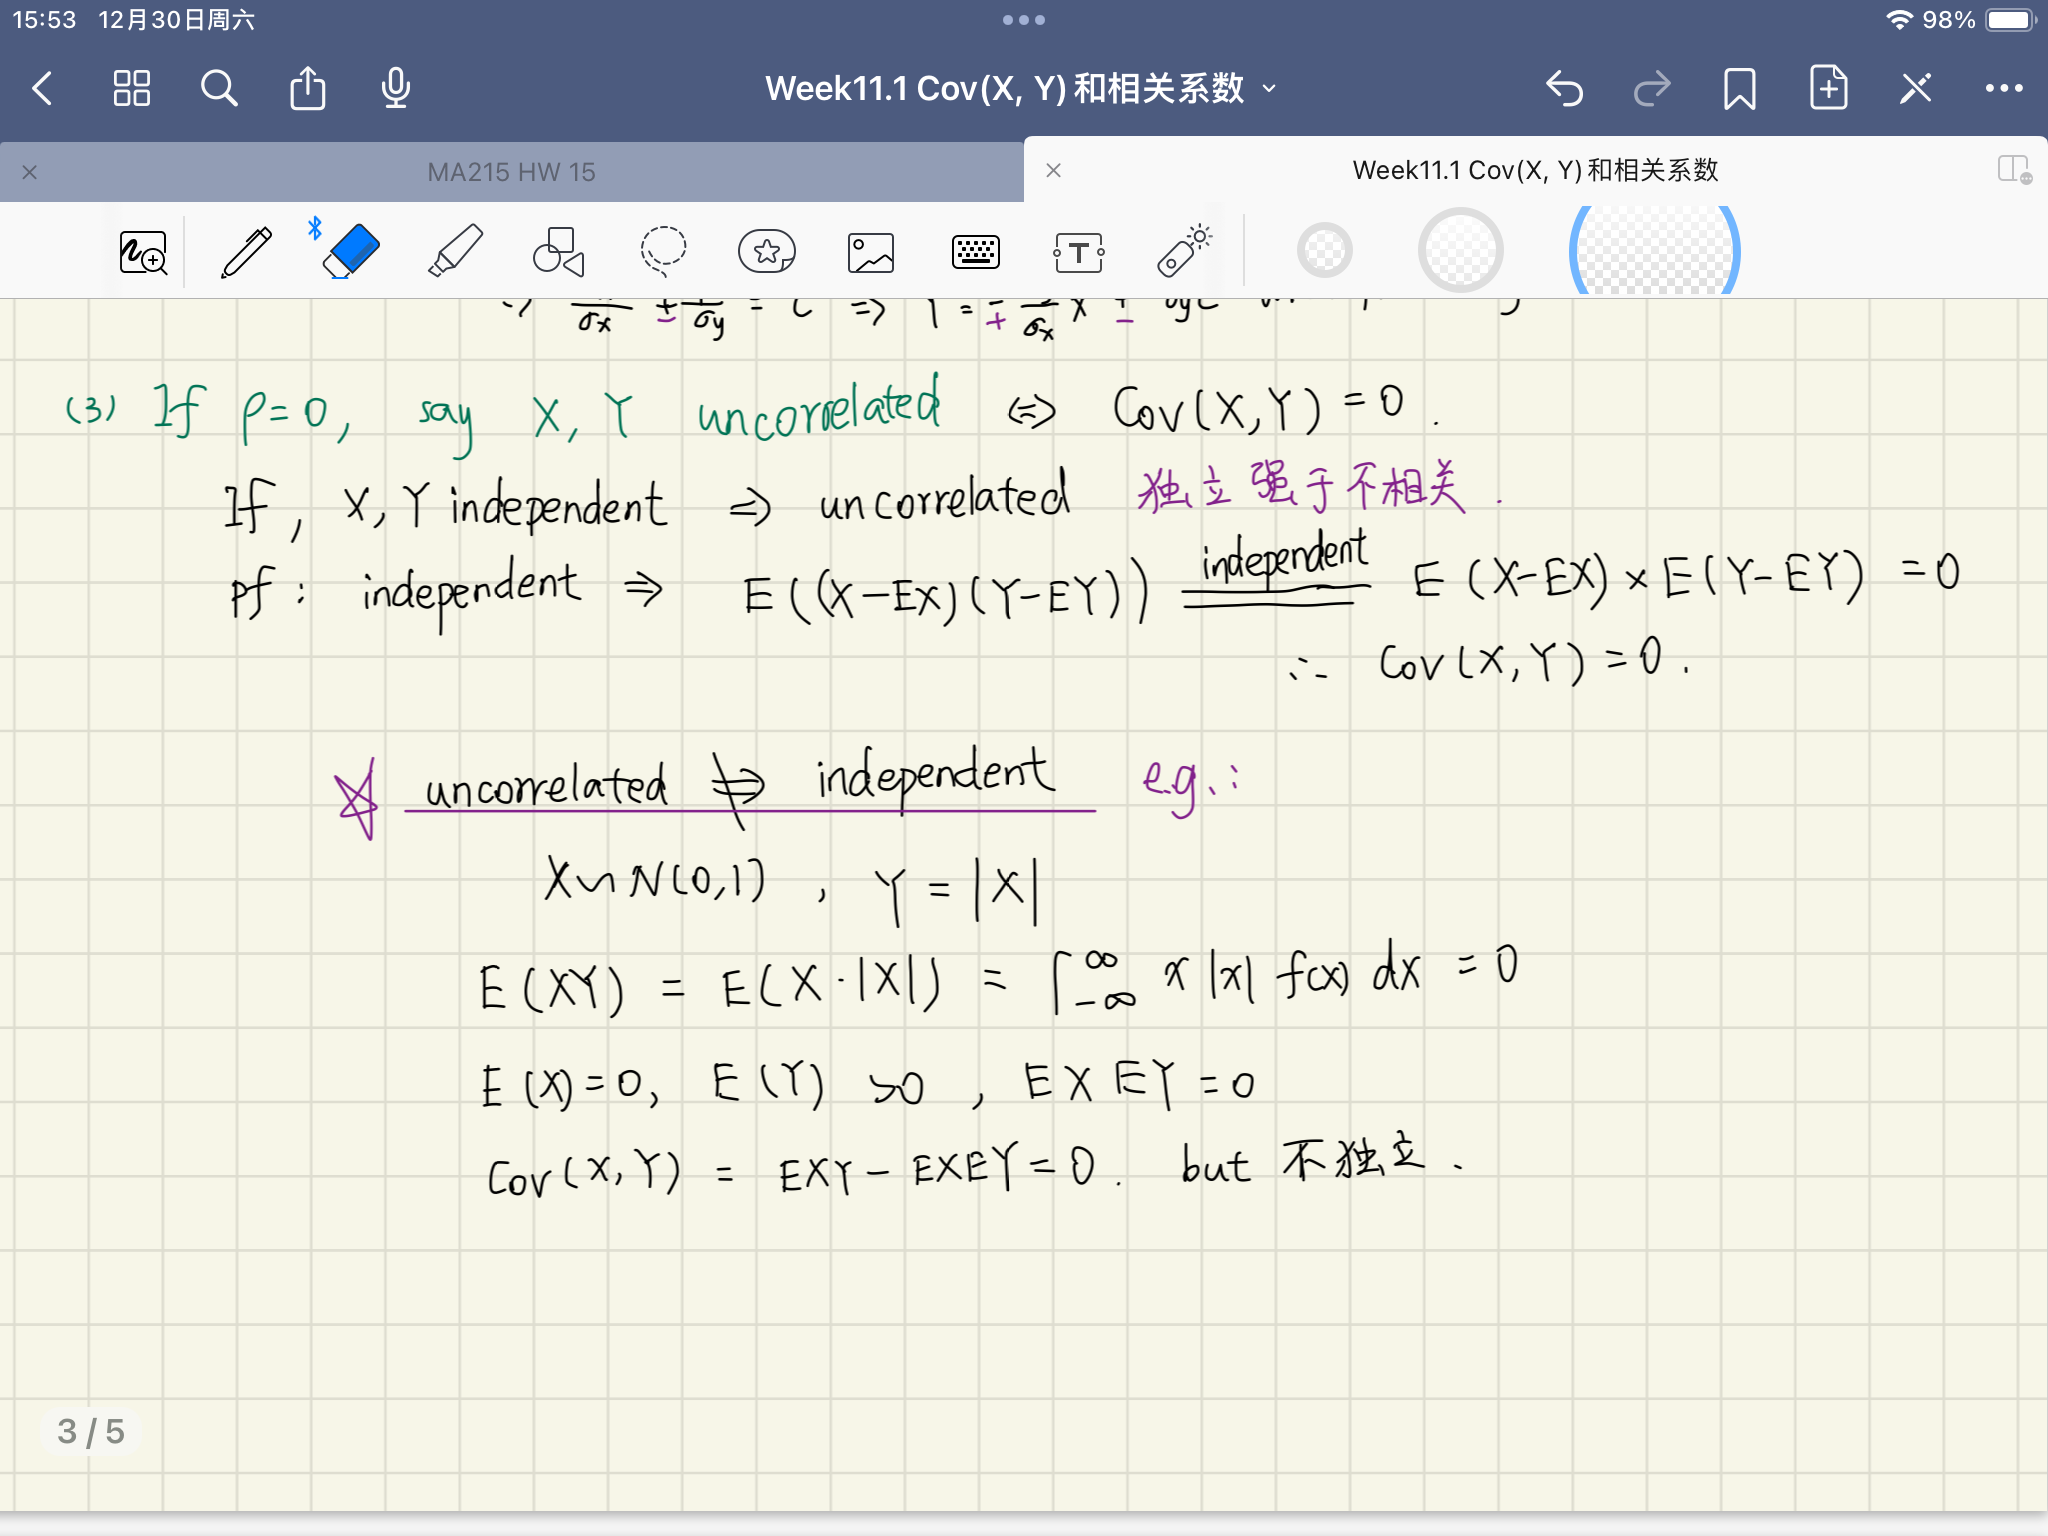 15:53 12月30日周六 98%
Week11.1 Cov(X, Y) 和相关系数
MA215 HW 15
Week11.1 Cov(X, Y) 和相关系数
(3) If ρ=0, say X, Y uncorrelated ⇔ Cov(X,Y) = 0.
If, X, Y independent ⇒ uncorrelated 独立强于不相关.
pf: independent ⇒ E((X-EX)(Y-EY)) independent E(X-EX)×E(Y-EY) = 0
∴ Cov(X,Y) = 0.
☆ uncorrelated ⇏ independent e.g.:
X~N(0,1), Y = |X|
E(XY) = E(X·|X|) = ∫_{-∞}^{∞} x|x| f(x) dx = 0
E(X)=0, E(Y) >0, EX EY = 0
Cov(X,Y) = EXY - EXEY = 0. but 不独立.
3 / 5